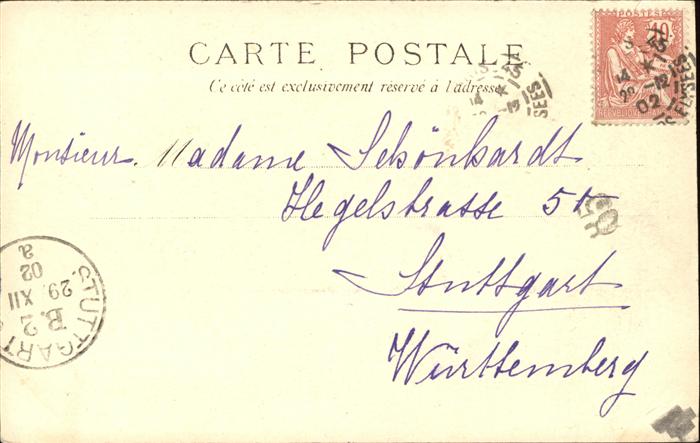 CARTE POSTALE
Ce côté est exclusivement réservé à l'adresse
Monsieur. Madame Schönhardt
Hegelstrasse 5
Stuttgart
Württemberg
STUTTGART
B. 2
29 XII
02
a
POSTES
10
14
02